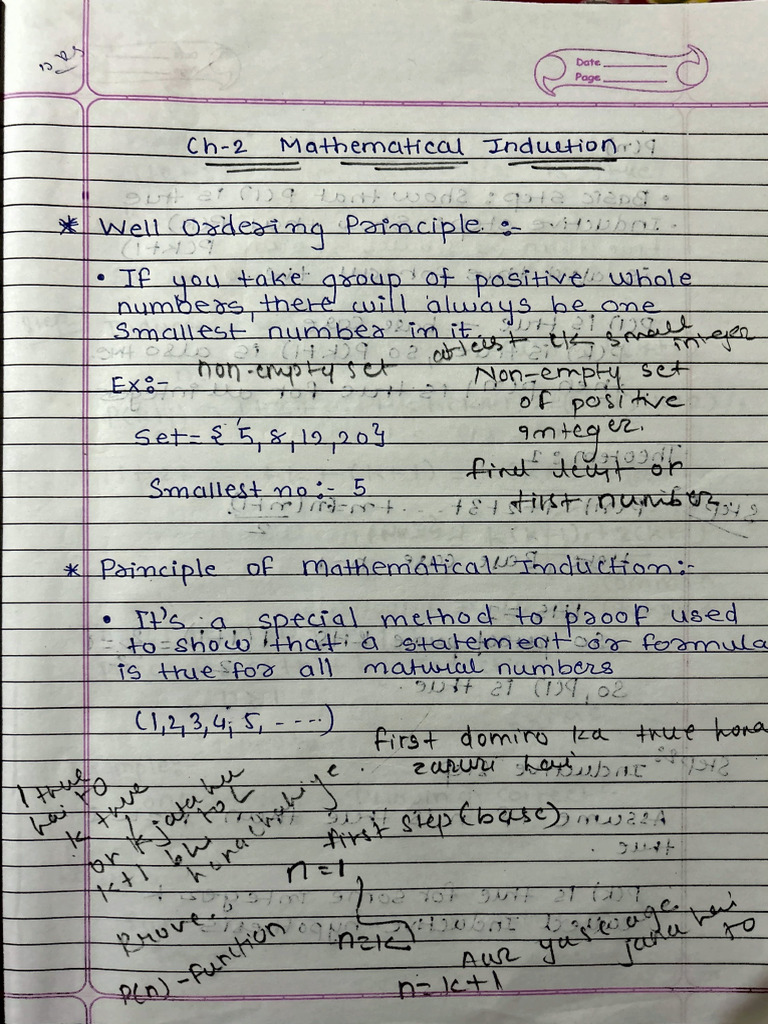 Date
Page
Ch-2 Mathematical Induction
* Well Ordering Principle :-
• If you take group of positive whole
numbers, there will always be one
smallest number in it.
atleast ek small integer
non-empty set
Non-empty set
of positive
integer.
Ex:-
Set = { 5, 8, 12, 20}
Smallest no :- 5
find least or
first number
* Principle of Mathematical Induction:-
• It's a special method to proof used
to show that a statement or formula
is true for all natural numbers
(1,2,3,4, 5, ----)
first domino ka true hona
zaruri hai.
1 true
hai to
k true
or k jata hu to
k+1 bhi
hona chahiye
first step (base)
n=1
n=k
Prove.
P(n) - function
Aur
jata hai to
n=k+1